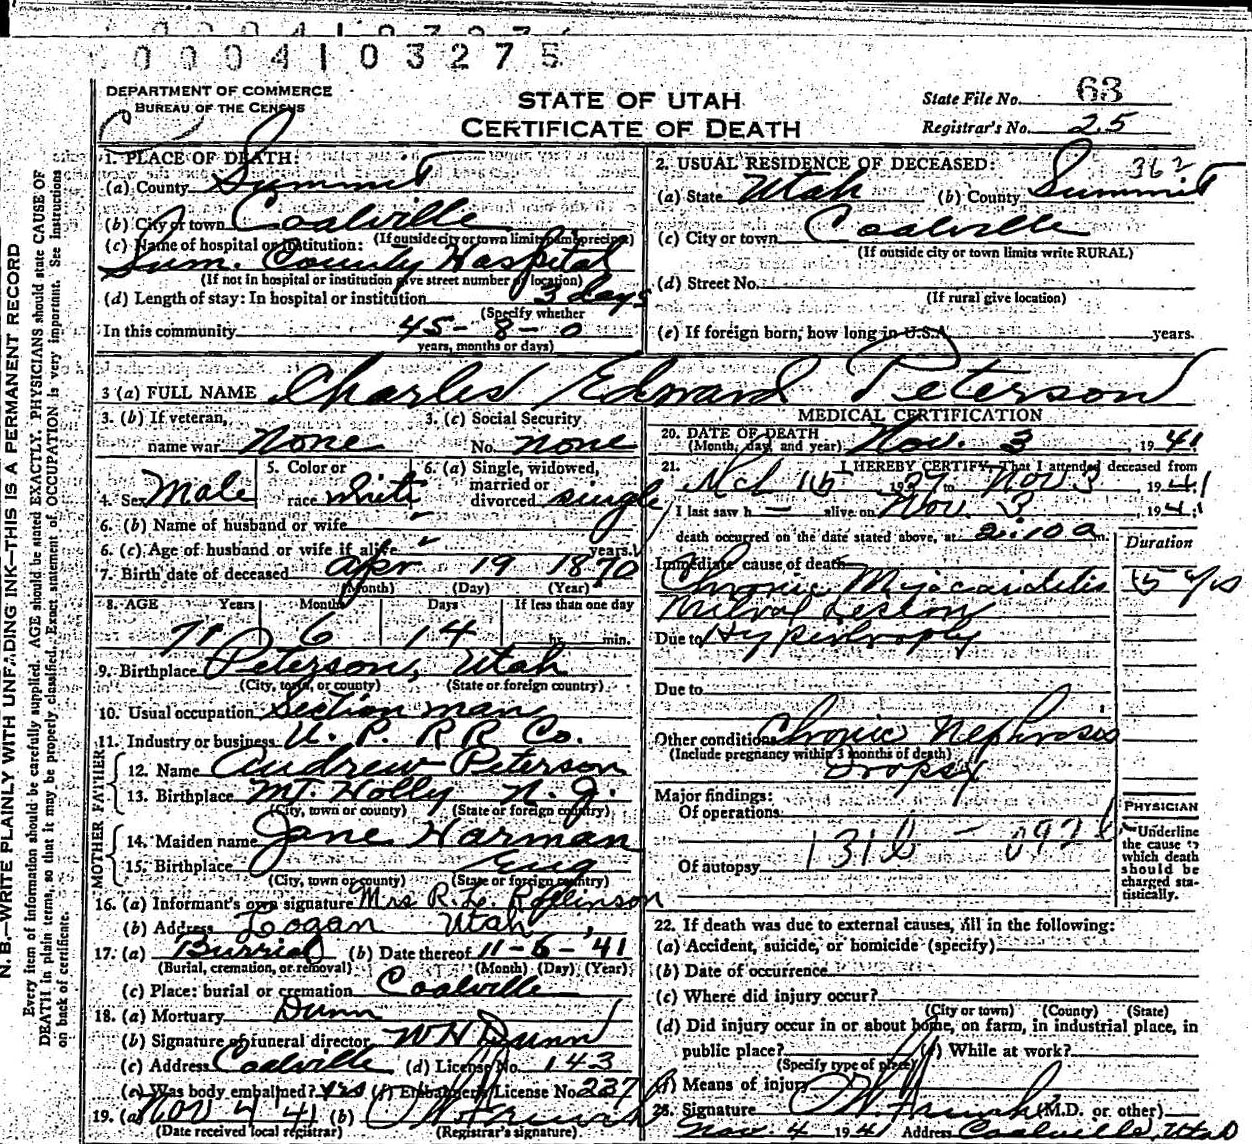 0004103275
DEPARTMENT OF COMMERCE
BUREAU OF THE CENSUS
STATE OF UTAH
CERTIFICATE OF DEATH
State File No. 63
Registrar's No. 25
1. PLACE OF DEATH:
(a) County Summit
(b) City or town Coalville
(If outside city or town limits
(c) Name of hospital or institution:
Sum. County Hospital
(If not in hospital or institution give street number or location)
(d) Length of stay: In hospital or institution 3 days
(Specify whether
In this community 45-8-0
years, months or days)
2. USUAL RESIDENCE OF DECEASED:
(a) State Utah (b) County Summit
(c) City or town Coalville
(If outside city or town limits write RURAL)
(d) Street No.
(If rural give location)
(e) If foreign born, how long in U.S.A. years.
3 (a) FULL NAME Charles Edward Peterson
3. (b) If veteran, 3. (c) Social Security
name war None No. none
4. Sex Male 5. Color or race white 6. (a) Single, widowed, married or divorced single
6. (b) Name of husband or wife
6. (c) Age of husband or wife if alive years.
7. Birth date of deceased Apr 19 1870
(Month) (Day) (Year)
8. AGE Years Months Days If less than one day
71 6 14 hr. min.
9. Birthplace Peterson, Utah
(City, town, or county) (State or foreign country)
10. Usual occupation Section man
11. Industry or business U. P. RR Co.
FATHER
12. Name Andrew Peterson
13. Birthplace Mt. Holly N. J.
(City, town or county) (State or foreign country)
MOTHER
14. Maiden name Jane Harman
15. Birthplace Eng
(City, town or county) (State or foreign country)
16. (a) Informant's own signature Mrs R. L. Rollinson
(b) Address Logan Utah
17. (a) Burrial (b) Date thereof 11-6-'41
(Burial, cremation, or removal) (Month) (Day) (Year)
(c) Place: burial or cremation Coalville
18. (a) Mortuary Dunn
(b) Signature of funeral director W H Dunn
(c) Address Coalville (d) License No. 143
(e) Was body embalmed? yes (f) Embalmer's License No. 237
19. (a) Nov 4 '41 (b)
(Date received local registrar) (Registrar's signature)
MEDICAL CERTIFICATION
20. DATE OF DEATH
(Month, day, and year) Nov. 3, 1941
21. I HEREBY CERTIFY, That I attended deceased from
to Nov 3 1941
I last saw h— alive on Nov. 3, 1941
death occurred on the date stated above, at 2:10 a m.
Duration
Immediate cause of death
Chronic Myocarditis 15 yrs
Mitral Lesion
Due to Hypertrophy
Due to
Other conditions Chronic Nephrosis
(Include pregnancy within 3 months of death)
Dropsy
Major findings:
Of operations
Of autopsy
PHYSICIAN
Underline
the cause to
which death
should be
charged sta-
tistically.
22. If death was due to external causes, fill in the following:
(a) Accident, suicide, or homicide (specify)
(b) Date of occurrence
(c) Where did injury occur?
(City or town) (County) (State)
(d) Did injury occur in or about home, on farm, in industrial place, in
public place? (e) While at work?
(Specify type of place)
(f) Means of injury
23. Signature (M.D. or other)
Nov. 4 1941 Address Coalville Utah
N. B.—WRITE PLAINLY WITH UNFADING INK—THIS IS A PERMANENT RECORD
Every item of information should be carefully supplied. AGE should be stated EXACTLY. PHYSICIANS should state CAUSE OF
DEATH in plain terms, so that it may be properly classified. Exact statement of OCCUPATION is very important. See instructions
on back of certificate.